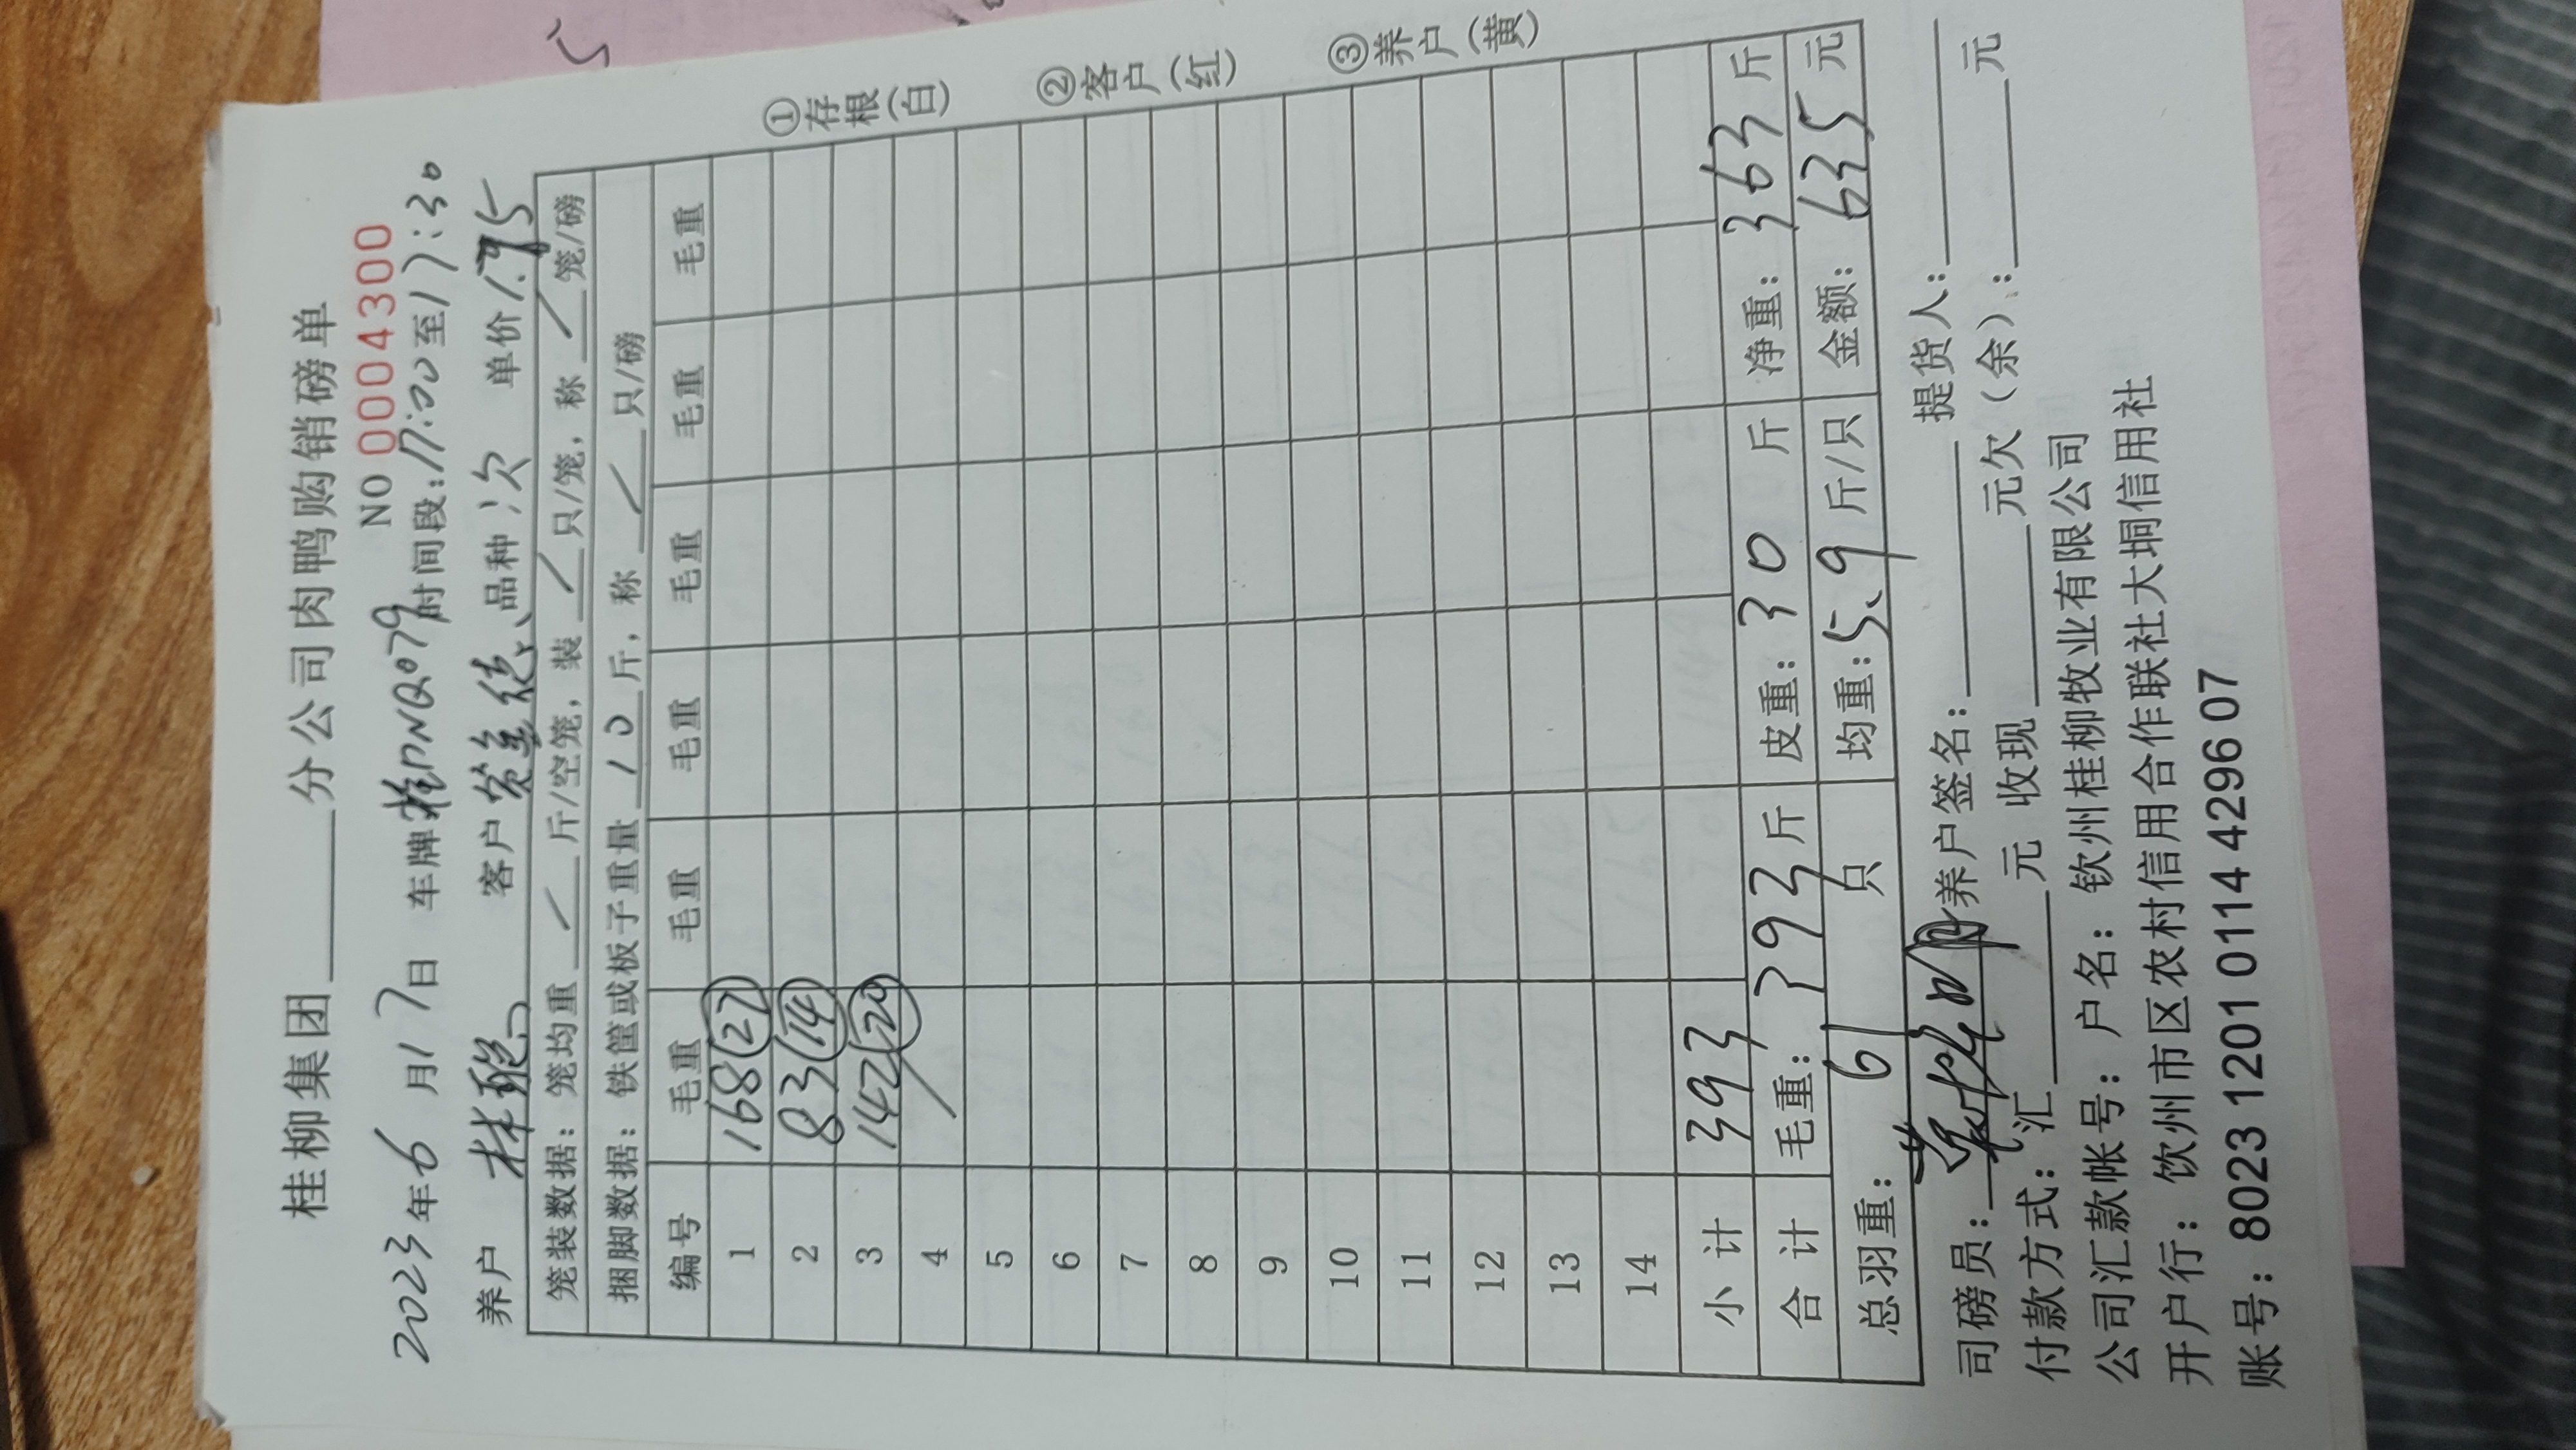 桂柳集团____分公司肉鸭购销磅单
NO 0004300
2023年6月17日 车牌桂NQ079 时间段:17:00至17:30
养户 林聪 客户 品种 次 单价1.75
笼装数据：笼均重 / 斤/空笼，装 / 只/笼，称 / 笼/磅
捆脚数据：铁筐或板子重量 10 斤，称 / 只/磅
编号 毛重 毛重 毛重 毛重 毛重 毛重
1 168 (27)
2 83 (14)
3 142 (20)
4
5
6
7
8
9
10
11
12
13
14
小计 393
合计 毛重：393斤 皮重：30斤 净重：363斤
总羽重：61只 均重：5.9斤/只 金额：635元
①存根(白) ②客户(红) ③养户(黄)
司磅员： 养户签名：____ 提货人：____
付款方式：汇____元 收现____元欠（余）：____元
公司汇款帐号：户名：钦州桂柳牧业有限公司
开户行：钦州市区农村信用合作联社大垌信用社
账号：8023 1201 0114 4296 07
5